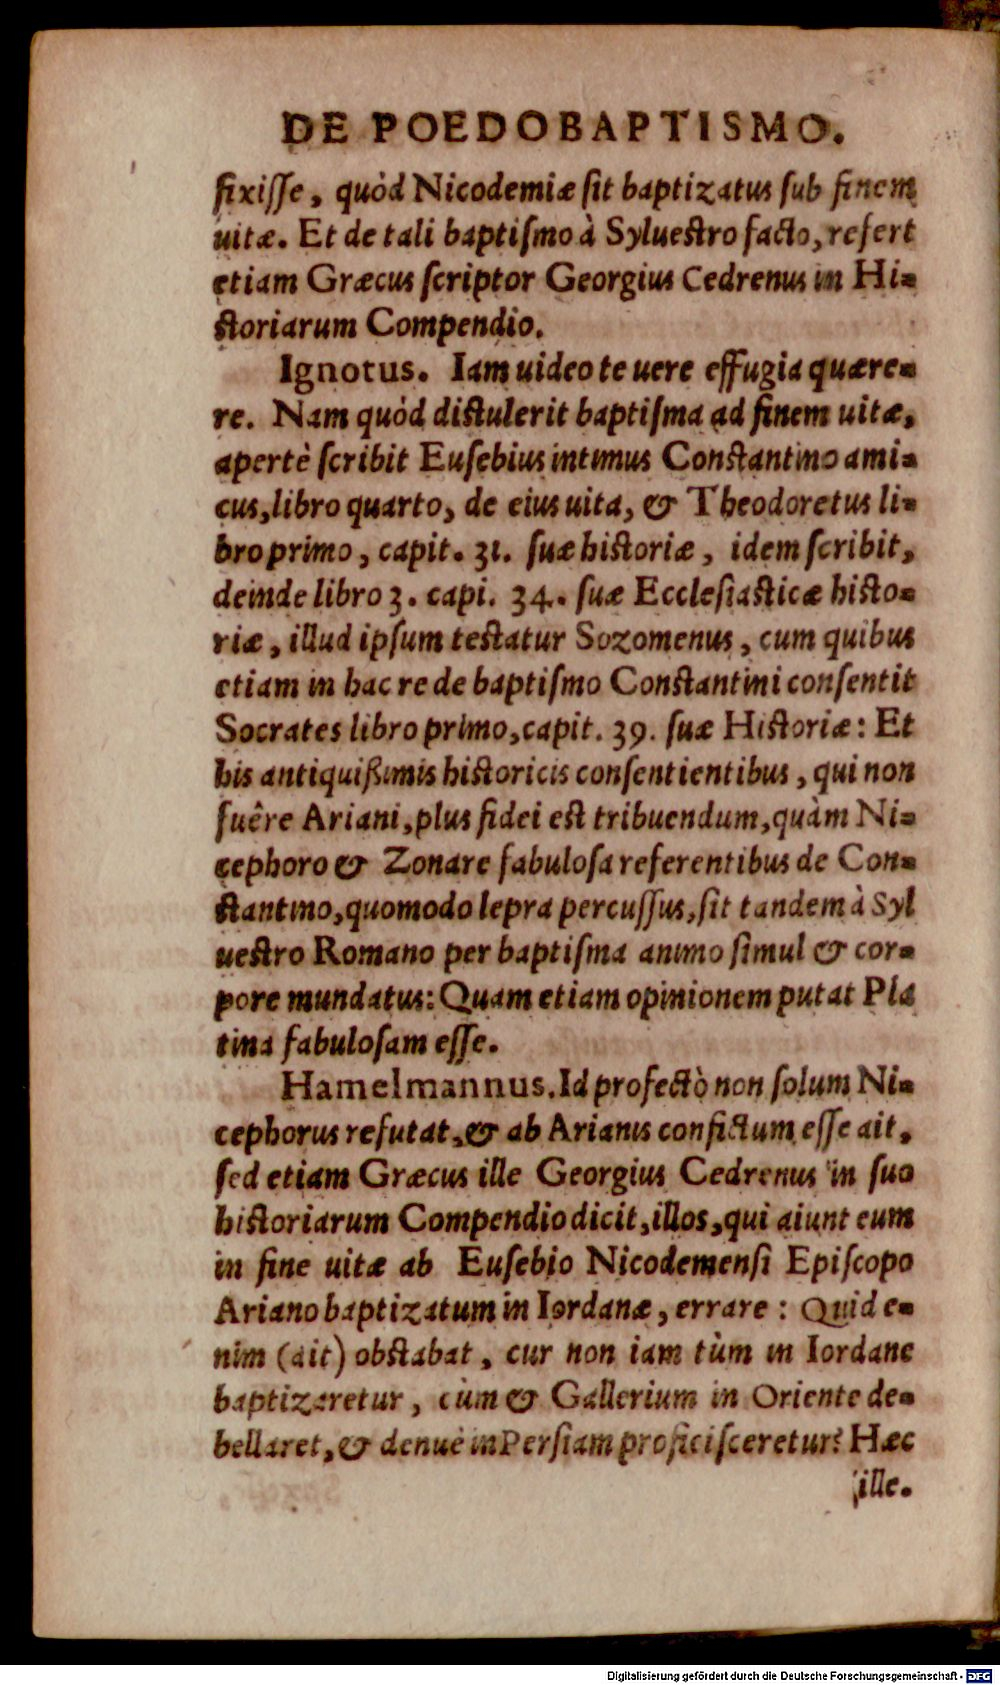 DE POEDOBAPTISMO.
fixisse, quòd Nicodemiæ sit baptizatus sub finem
uitæ. Et de tali baptismo à Syluestro facto, refert
etiam Græcus scriptor Georgius Cedrenus in Hi-
storiarum Compendio.
Ignotus. Iam uideo te uere effugia quære-
re. Nam quòd distulerit baptisma ad finem uitæ,
apertè scribit Eusebius intimus Constantino ami-
cus, libro quarto, de eius uita, & Theodoretus li-
bro primo, capit. 31. suæ historiæ, idem scribit,
deinde libro 3. capi. 34. suæ Ecclesiasticæ histo-
riæ, illud ipsum testatur Sozomenus, cum quibus
etiam in hac re de baptismo Constantini consentit
Socrates libro primo, capit. 39. suæ Historiæ: Et
his antiquißimis historicis consentientibus, qui non
fuêre Ariani, plus fidei est tribuendum, quàm Ni-
cephoro & Zonare fabulosa referentibus de Con-
stantino, quomodo lepra percussus, sit tandem à Syl
uestro Romano per baptisma animo simul & cor-
pore mundatus: Quam etiam opinionem putat Pla
tina fabulosam esse.
Hamelmannus. Id profectò non solum Ni-
cephorus refutat, & ab Arianis confictum esse ait,
sed etiam Græcus ille Georgius Cedrenus in suo
historiarum Compendio dicit, illos, qui aiunt eum
in fine uitæ ab Eusebio Nicodemensi Episcopo
Ariano baptizatum in Iordanæ, errare: Quid e-
nim (ait) obstabat, cur non iam tùm in Iordane
baptizaretur, cùm & Gallerium in Oriente de-
bellaret, & denuè in Persiam proficisceretur? Hæc
ille.
Digitalisierung gefördert durch die Deutsche Forschungsgemeinschaft - DFG